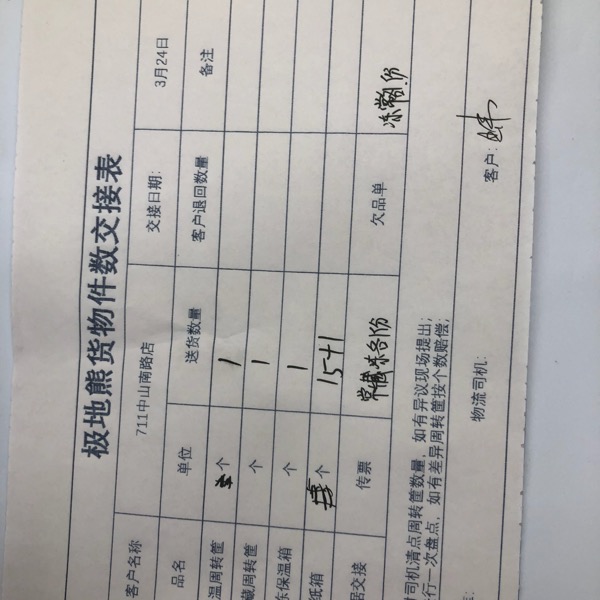 极地熊货物件数交接表
客户名称 711中山南路店 交接日期: 3月24日
品名 单位 送货数量 客户退回数量 备注
温周转筐 个 1
藏周转筐 个 1
保温箱 个 1
纸箱 个
居交接 传票 常藏冻各1份 欠品单 冻常1份
司机清点周转筐数量，如有异议现场提出；
行一次盘点，如有差异周转筐按个数赔偿；
物流司机: 客户: